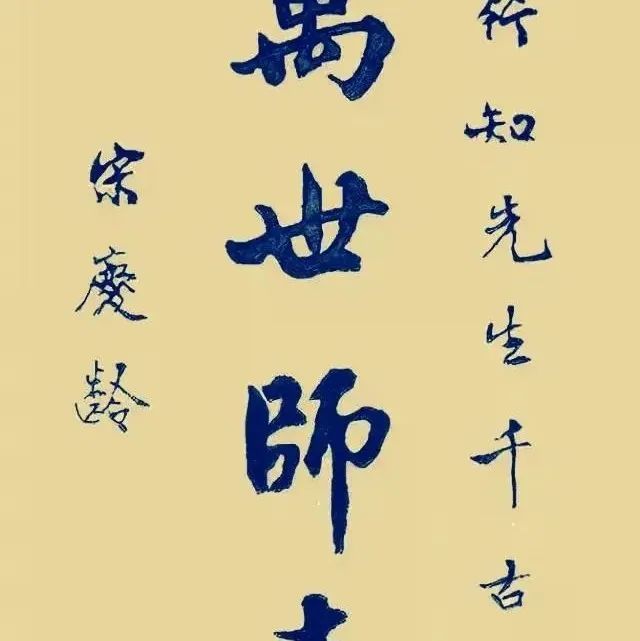 行知先生千古
萬世師
宋慶齡